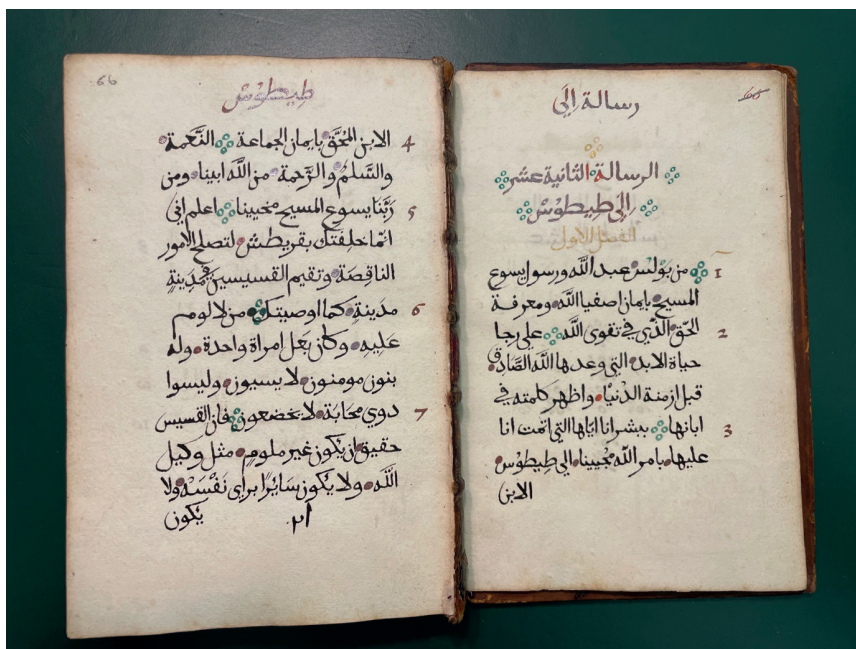 رسالة إلى
66
الرسالة الثانية عشر
إلى طيطوس
الفصل الاول
1 من بولس عبد الله ورسول يسوع
المسيح بايمان اصفيا الله ومعرفة
2 الحق الذي في تقوى الله على رجا
حياة الابد التي وعدها الله الصادق
قبل ازمنة الدنيا واظهر كلمته في
3 ابانها ببشرانا اياها التي اتمت انا
عليها بامر الله محيينا الى طيطوس
الابن
66
طيطوس
4 الابن المحق بايمان الجماعة النعمة
والسلم والرحمة من الله ابينا ومن
5 ربنا يسوع المسيح محيينا اعلم اني
انما خلفتك بقريطش لتصلح الامور
الناقصة وتقيم القسيسين في مدينة
6 مدينة كما اوصيتك من لا لوم
عليه وكان بعل امراة واحدة وله
بنون مومنون لا يسبون وليسوا
7 دوي محابة لا يخضعون فان القسيس
حقيق ان يكون غير ملوم مثل وكيل
الله ولا يكون سايرا براى نفسه ولا
يكون